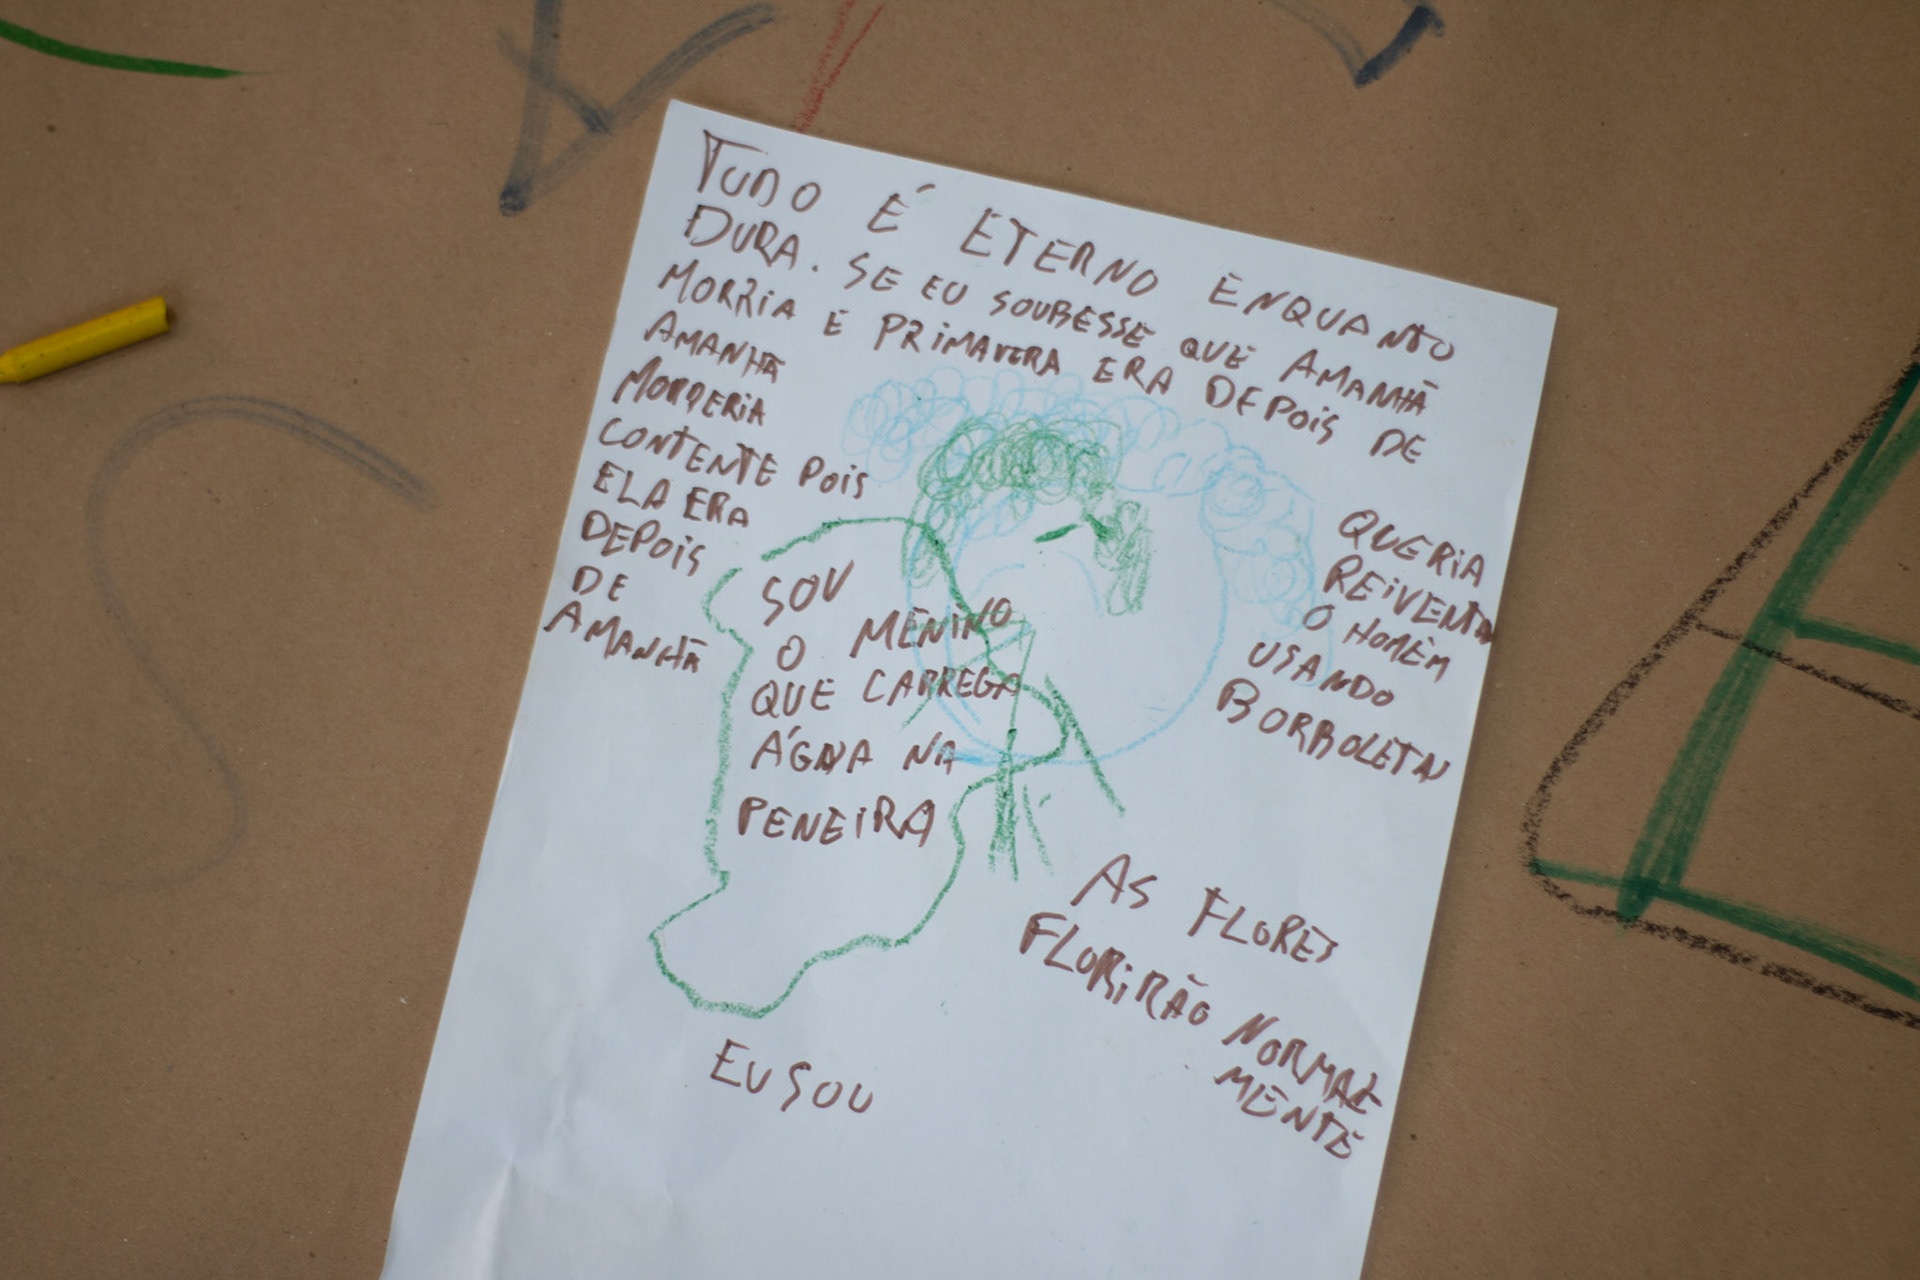 TUDO É ETERNO ENQUANTO
DURA. SE EU SOUBESSE QUE AMANHÃ
MORRIA E PRIMAVERA ERA DEPOIS DE
AMANHÃ
MORRERIA
CONTENTE POIS
ELA ERA
DEPOIS
DE
AMANHÃ
SOU
O MENINO
QUE CARREGA
ÁGUA NA
PENEIRA
QUERIA
REIVENTA
O HOMEM
USANDO
BORBOLETAS
AS FLORES
FLORIRÃO NORMAL
MENTE
EU SOU